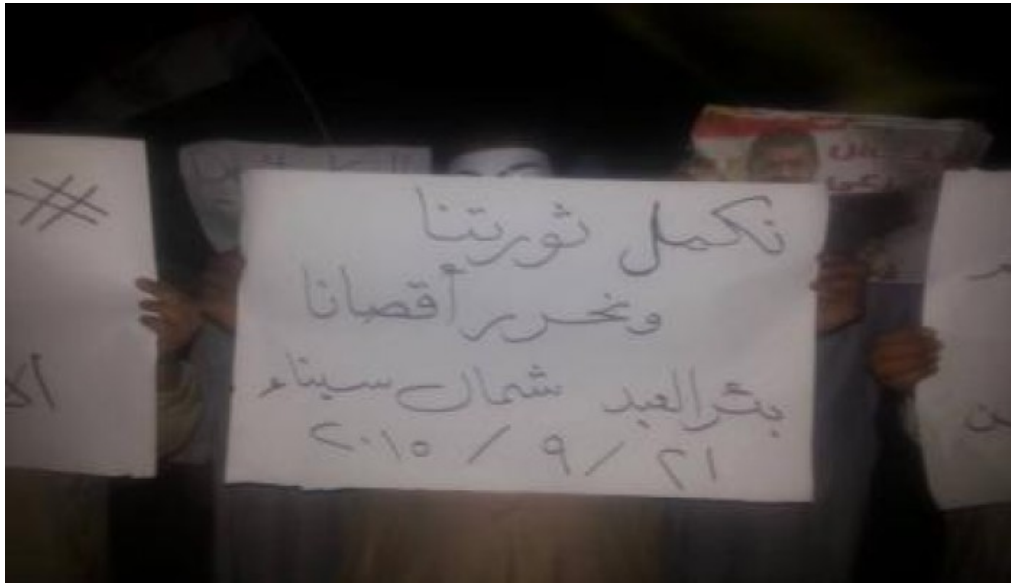 نكمل ثورتنا
ونحرر أقصانا
بئر العبد شمال سيناء
٢١ / ٩ / ٢٠١٥
#